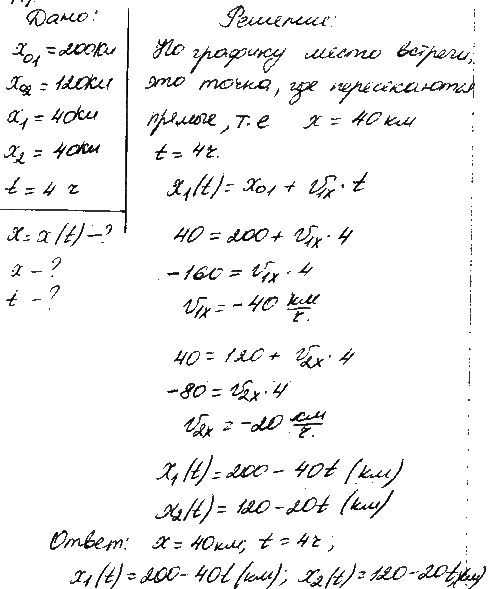 Дано:
x₀₁ = 200км
x₀₂ = 120км
x₁ = 40км
x₂ = 40км
t = 4 ч
x = x(t) – ?
x – ?
t – ?
Решение:
По графику место встречи,
это точка, где пересекаются
прямые, т.е x = 40 км
t = 4ч.
x₁(t) = x₀₁ + v₁ₓ · t
40 = 200 + v₁ₓ · 4
-160 = v₁ₓ · 4
v₁ₓ = -40 км/ч.
40 = 120 + v₂ₓ · 4
-80 = v₂ₓ · 4
v₂ₓ = -20 км/ч.
x₁(t) = 200 - 40t (км)
x₂(t) = 120 - 20t (км)
Ответ: x = 40км; t = 4ч;
x₁(t) = 200 - 40t (км); x₂(t) = 120 - 20t (км)